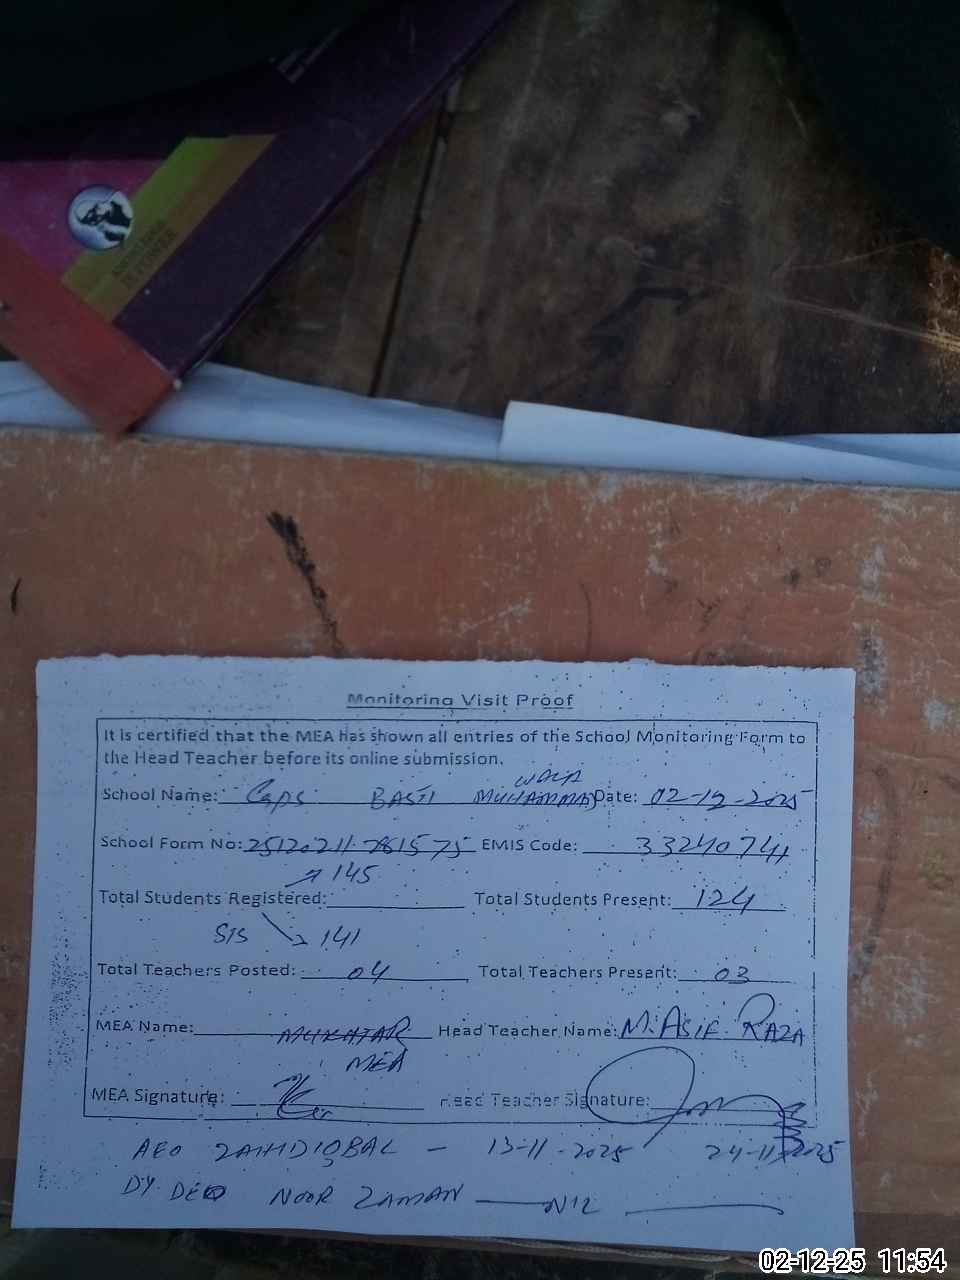 Monitoring Visit Proof
It is certified that the MEA has shown all entries of the School Monitoring Form to
the Head Teacher before its online submission.
School Name: Gaps BASTI MUHAMMAD WALA Date: 02-12-2025
School Form No: 25120211-781575 EMIS Code: 33240741
145
Total Students Registered: Total Students Present: 124
SIS 141
Total Teachers Posted: 04 Total Teachers Present: 03
MEA Name: MUKHTAR Head Teacher Name: M. ASIF RAZA
MEA
MEA Signature: Head Teacher Signature:
AEO ZAHID IQBAL - 13-11-2025 24-11-2025
DY. DEO NOOR ZAMAN — NIL —
02-12-25 11:54